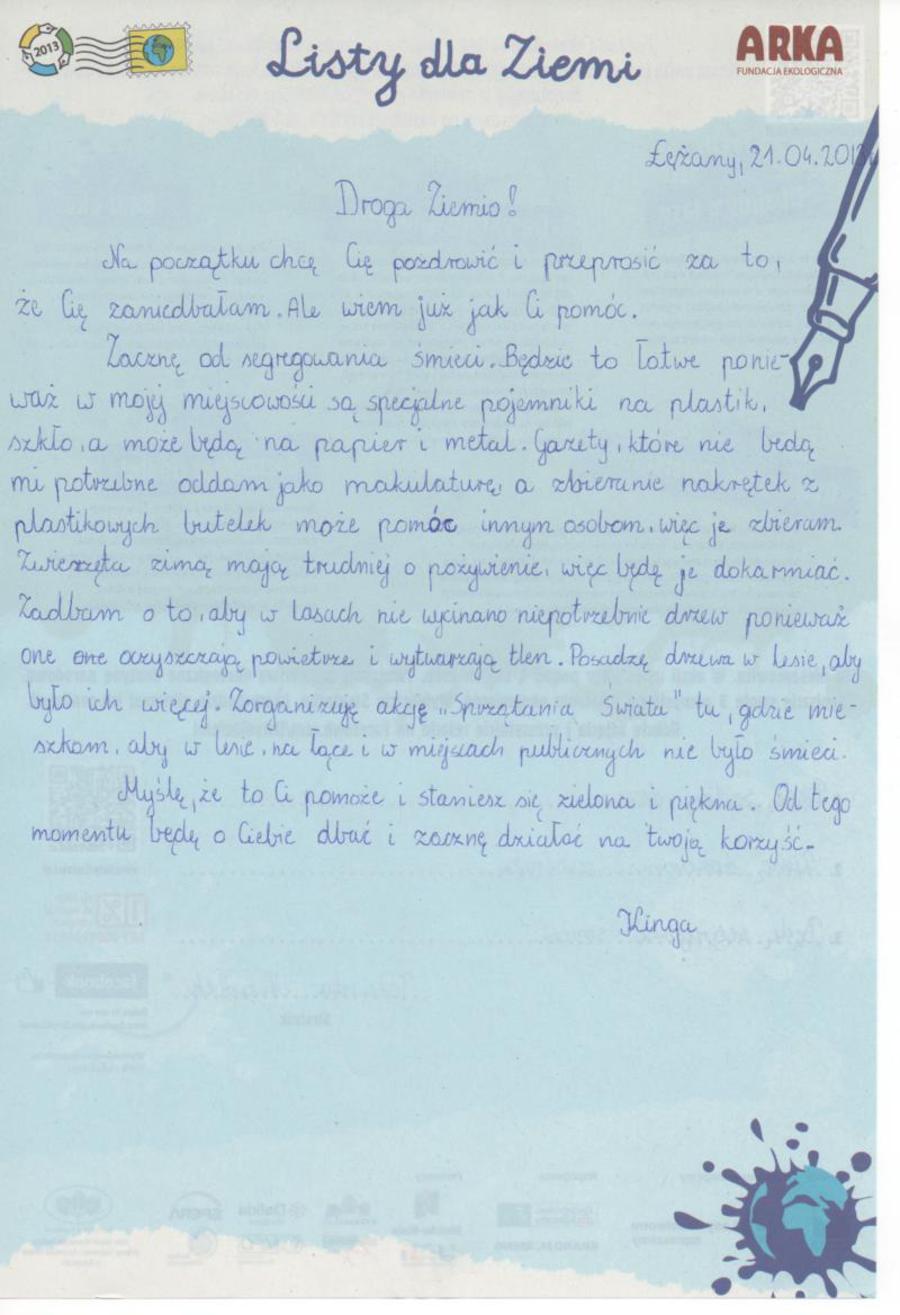 2013
Listy dla Ziemi
ARKA
FUNDACJA EKOLOGICZNA
Łężany, 21.04.2013
Droga Ziemio!
Na początku chcę Cię pozdrowić i przeprosić za to,
że Cię zaniedbałam. Ale wiem już jak Ci pomóc.
Zacznę od segregowania śmieci. Będzie to łatwe ponie-
waż w mojej miejscowości są specjalne pojemniki na plastik,
szkło, a może będą na papier i metal. Gazety, które nie będą
mi potrzebne oddam jako makulaturę, a zbieranie nakrętek z
plastikowych butelek może pomóc innym osobom, więc je zbieram.
Zwierzęta zimą mają trudniej o pożywienie, więc będę je dokarmiać.
Zadbam o to, aby w lasach nie wycinano niepotrzebnie drzew ponieważ
one one oczyszczają powietrze i wytwarzają tlen. Posadzę drzewa w lesie, aby
było ich więcej. Zorganizuję akcję „Sprzątania Świata" tu, gdzie mie-
szkam, aby w lesie, na łące i w miejscach publicznych nie było śmieci.
Myślę, że to Ci pomoże i staniesz się zielona i piękna. Od tego
momentu będę o Ciebie dbać i zacznę działać na twoją korzyść.
Kinga